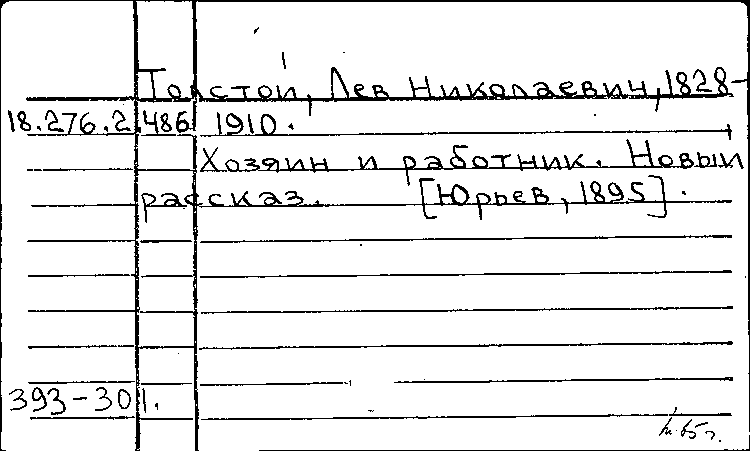 Толстой, Лев Николаевич, 1828-
18.276.2.486 1910.
Хозяин и работник. Новый
рассказ. [Юрьев, 1895].
393-301.